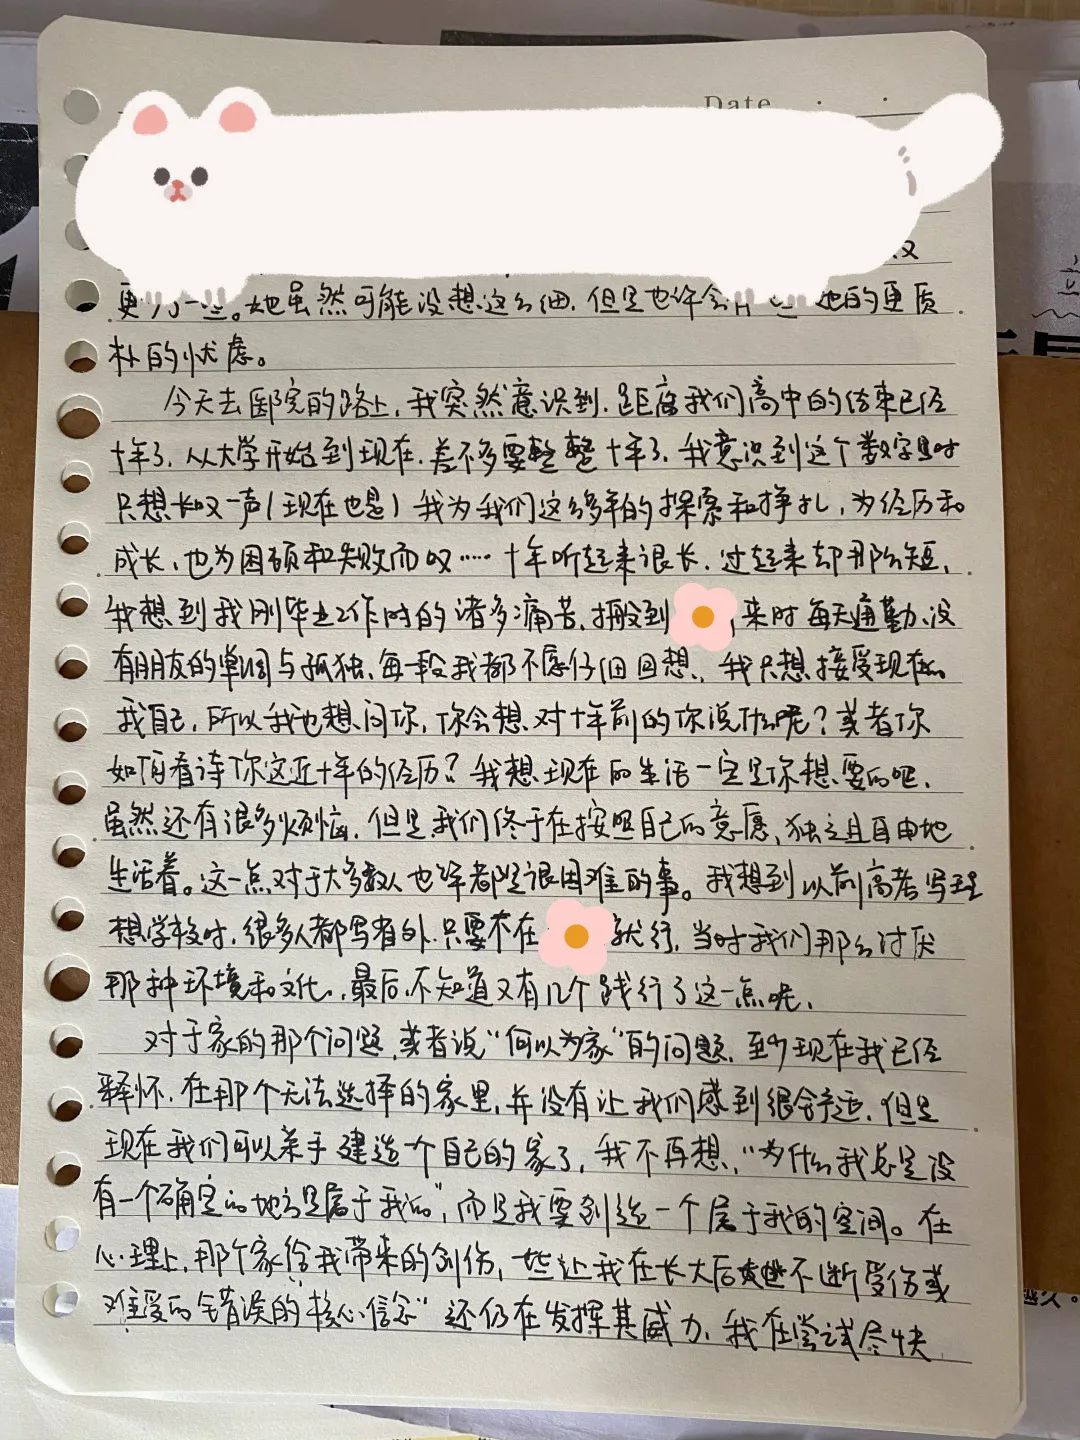 Date
一些。她虽然可能没想这么细，但是也许会 她的更质
朴的忧虑。
今天去医院的路上，我突然意识到，距离我们高中的结束已经
十年了，从大学开始到现在，差不多要整整十年了，我意识到这个数字时
只想长叹一声（现在也是）我为我们这么多年的探索和挣扎，为经历和
成长，也为困顿和失败而叹……十年听起来很长，过起来却那么短，
我想到我刚毕业工作时的诸多痛苦，搬到 来时每天通勤、没
有朋友的单调与孤独，每一段我都不愿仔细回想，我只想接受现在
我自己，所以我也想问你，你会想对十年前的你说什么呢？或者你
如何看待你这近十年的经历？我想现在的生活一定是你想要的吧，
虽然还有很多烦恼，但是我们终于在按照自己的意愿，独立且自由地
生活着。这一点对于大多数人也许都是很困难的事。我想到以前高考写理
想学校时，很多人都写省外，只要不在 就行，当时我们那么讨厌
那种环境和文化，最后不知道又有几个践行了这一点呢，
对于家的那个问题，或者说“何以为家”的问题，至少现在我已经
释怀，在那个无法选择的家里，并没有让我们感到很舒适，但是
现在我们可以亲手建造一个自己的家了，我不再想，“为什么我总是没
有一个确定的地方是属于我的”，而是我要创造一个属于我的空间。在
心理上，那个家给我带来的创伤，一些让我在长大后 不断受伤或
难受的错误的“核心信念”还仍在发挥其威力，我在尝试尽快